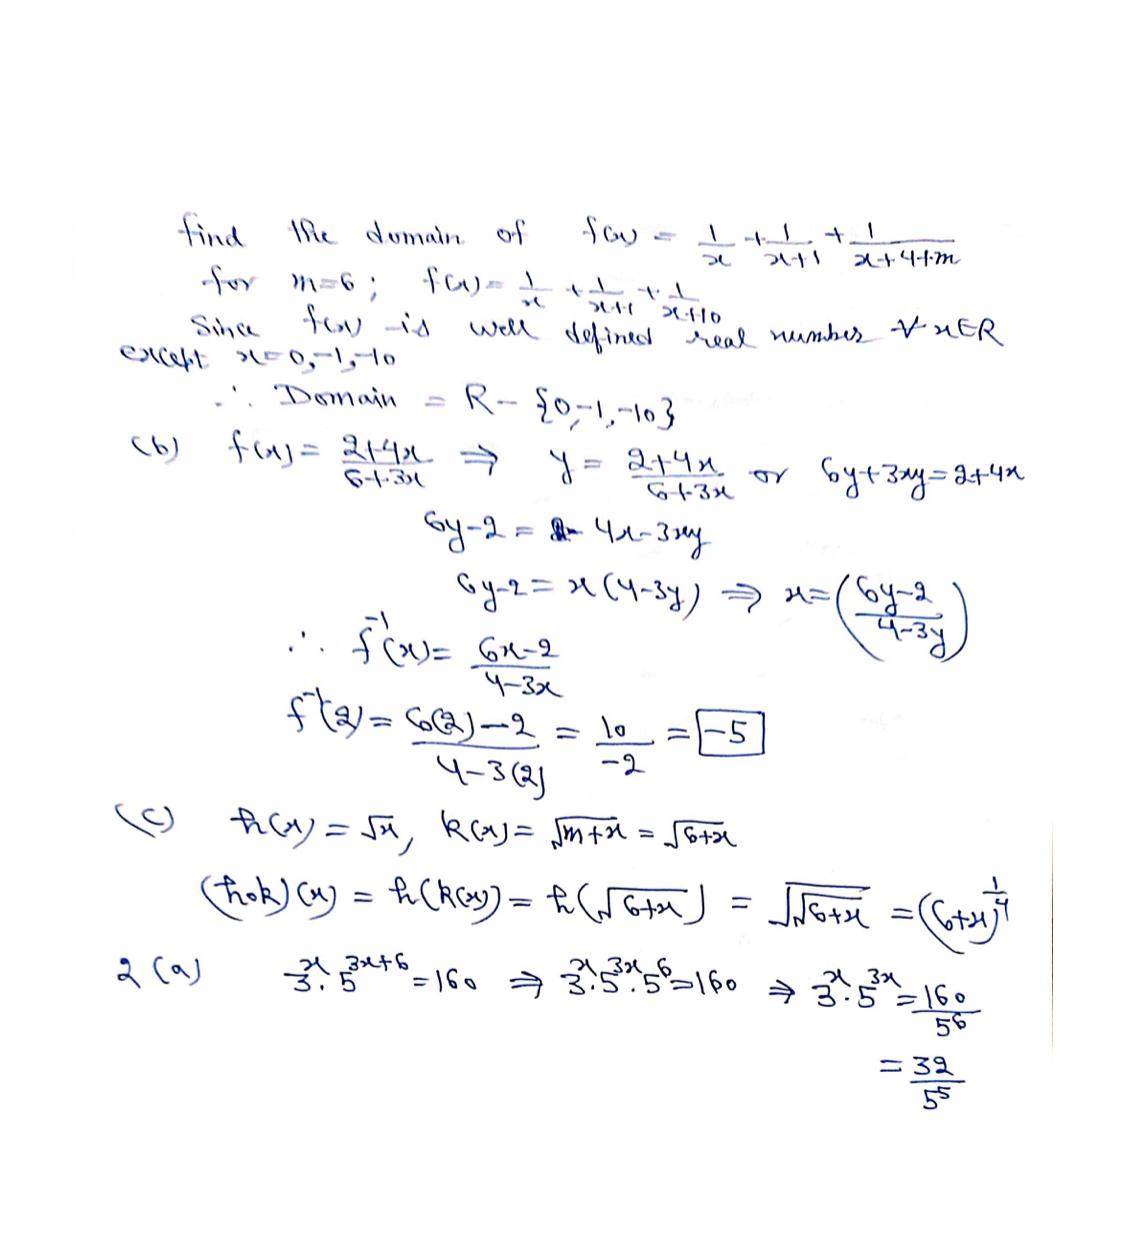 find the domain of f(x) = 1/x + 1/(x+1) + 1/(x+4+m)
for m=6; f(x) = 1/x + 1/(x+1) + 1/(x+10)
Since f(x) is well defined real number ∀ x∈R
except x=0,-1,-10
∴ Domain = R - {0,-1,-10}
(b) f(x) = (2+4x)/(6+3x) ⇒ y = (2+4x)/(6+3x) or 6y+3xy=2+4x
6y-2 = 4x-3xy
6y-2 = x(4-3y) ⇒ x = ((6y-2)/(4-3y))
∴ f⁻¹(x) = (6x-2)/(4-3x)
f⁻¹(2) = (6(2)-2)/(4-3(2)) = 10/-2 = -5
(c) h(x) = √x, k(x) = √(m+x) = √(6+x)
(hok)(x) = h(k(x)) = h(√(6+x)) = √(√(6+x)) = (6+x)^(1/4)
2 (a) 3^x · 5^(3x+6) = 160 ⇒ 3^x · 5^(3x) · 5^6 = 160 ⇒ 3^x · 5^(3x) = 160/5^6
= 32/5^5